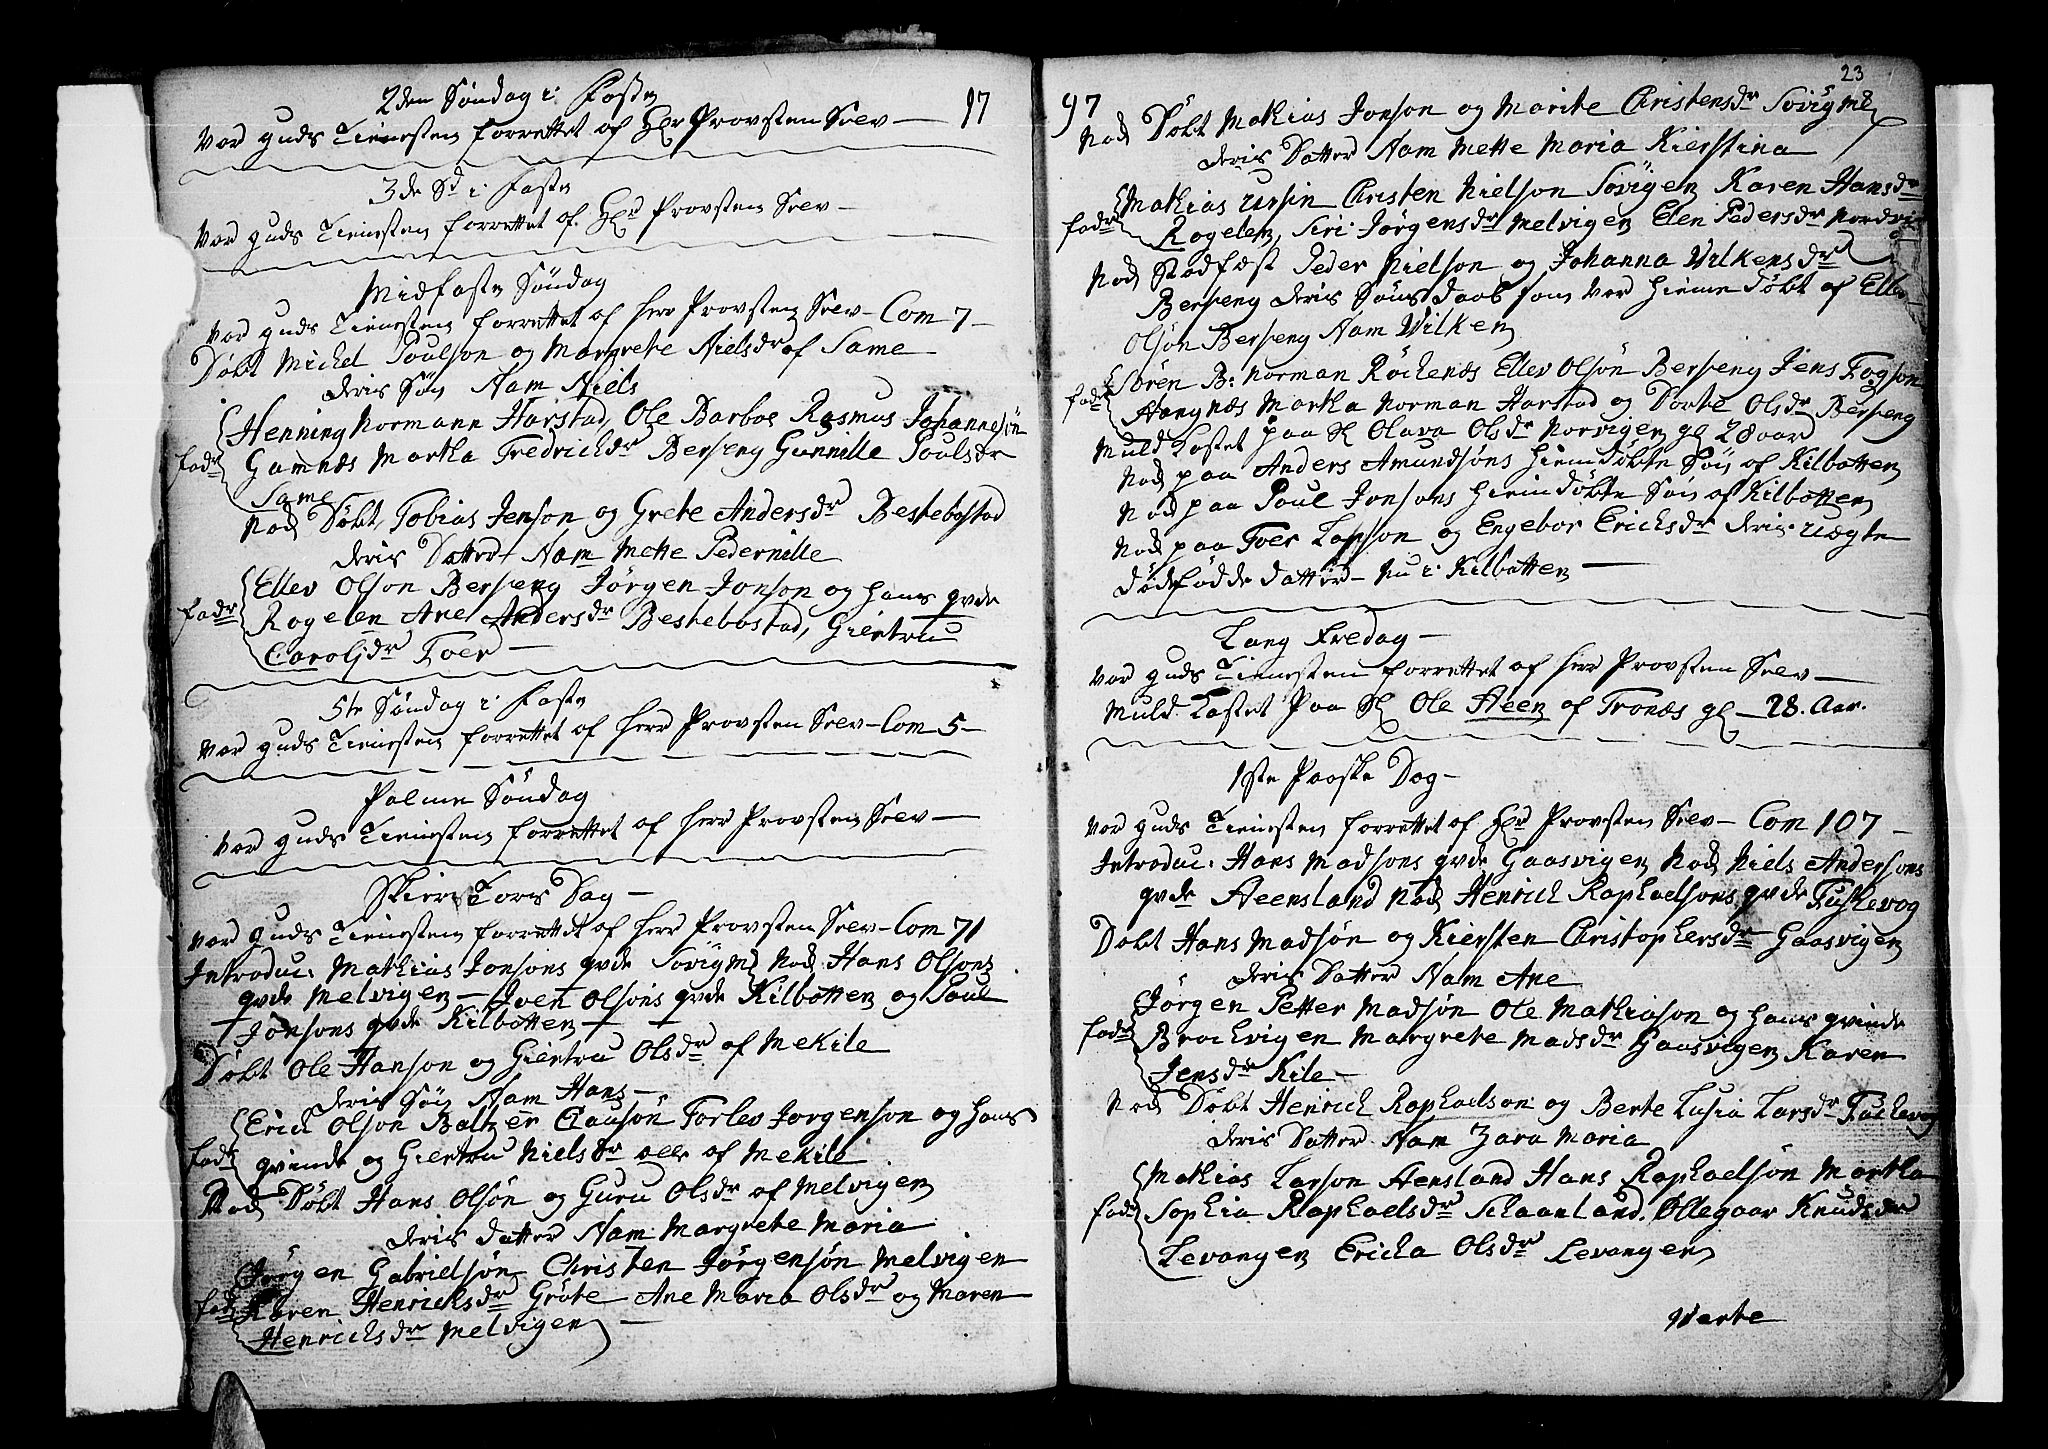 2den Søndag i Faste
Var guds Tienesten forrettet af Hr Provsten Selv — 17
3de Sd i Faste
Var guds Tienesten forrettet af Hr Provsten Selv —
Midfaste Søndag
Var guds Tienesten forrettet af Herr Provsten Selv — Com 7 —
Døbt Michel Poulson og Margrete Nielsdr af Same
deris Søn Nam Niels
Henning Normann Harstad, Ole Barboe Rasmus Johannesön
fadr Gamnæs Martha Fredrichdr Berseng Gunnille Poulsdr
Same
Nok Døbt Tobias Jenson og Grete Andersdr Beskebostad
deris Datter Nam Mette Pedernille
Ellev Olson Berseng Jørgen Jonson og hans qvde
fadr Rogelen Ane Andersdr Beskebostad, Giertru
Carolidr Foer —
5te Søndag i Faste
Var guds Tienesten forrettet af Herr Provsten Selv — Com 5 —
Palme Søndag
Var guds Tienesten forrettet af Herr Provsten Selv —
Skiers Tors Dag —
Var guds Tienesten forrettet af Herr Provsten Selv — Com 71
Introduc: Mathias Jonsons qvde Sövigen Nok Hans Olsons
qvde Melvigen — Iver Olsöns qvde Kilbotten og Poul
Jonsons qvde Kilbotten —
Døbt Ole Hanson og Giertru Olsdr af Mekile
deris Søn Nam Hans —
Erich Olson Baltzer Clausön Torles Jorgenson og hans
fadr qvinde og Giertru Nielsdr alle af Mekile
Nok Döbt Hans Olsön og Guru Olsdr af Melvigen
deris datter Nam Margrete Maria
Jörgen Gabrielsön Christen Jörgensön Melvigen
fadr Karen Henrichsdr Gröte Ane Maria Olsdr og Maren
Henrichsdr Melvigen —
23
97
Nok Döbt Mathias Jonson og Marite Christensdr Sövigen
deris Datter Nam Mette Maria Kierstina
Mathias Ursin Christen Nielson Sövigen Karen Hansdr
fadr Rogelen, Siri Jørgensdr Melvigen Elen Pedersdr Nordvig
Nok Stadfæst Peder Nielson og Johanna Wilkensdr
Berseng deris Søns daab som var hieme døbt af Ellev
Olsön Berseng Nam Wilken
Sören B: Norman Röckenæs Ellev Olsön Berseng Jens Fogson
fadr Hangnæs Martha Norman Harstad og Dorte Olsdr Berseng
Muld Kastet paa Sl Olava Olsdr Norvigen gl 28 aar
Nok paa Anders Amundsöns hiemdøbte Søn af Kilbotten
Nok paa Poul Jonsons hiemdøbte Søn af Kilbotten
Nok paa Foer Larson og Engebor Ericksdr deris uægte
dødfødde datter — Nu i Kilbotten —
Lang Fredag —
Var guds Tienesten forrettet af Herr Provsten Selv —
Muld Kastet Paa Sl Ole Heen af Tronæs gl — 28. Aar.
1ste Paaske Dag —
Var guds Tienesten forrettet af Hr Provsten Selv — Com 107 —
Introduc: Hans Madsons qvde Gaasvigen Nok Niels Andersons
qvde Heensland Nok Henrich Raphaelsons qvde Fuskevog
Døbt Hans Madsön og Kiersten Christophersdr Gaasvigen
deris Datter Nam Ane
Jörgen Petter Madsön Ole Mathiason og hans qvinde
fadr Brochvigen Margrete Madsdr Gaasvigen Karen
Jensdr Kile —
Nok Döbt Henrich Raphaelson og Berte Lusia Larsdr Fuskevog
deris Datter Nam Zara Maria
Mathias Larson Hensland Hans Raphaelsön Martha
fadr Sophia Raphaelsdr Schaanland. Øllegaar Knudsdr
Levangen Ericha Olsdr Levangen
Verte